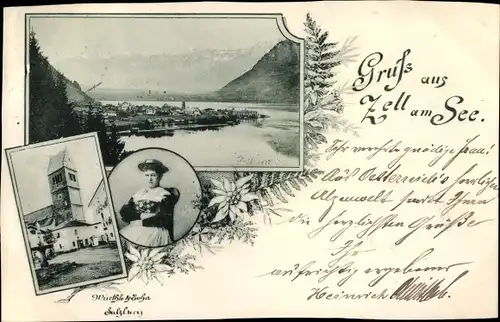 Gruß aus
Zell am See.
Sehr verehrte gnädige Frau!
Aus Oesterreich's herrlicher
Alpenwelt sendet Ihnen
die herzlichsten Grüße
Ihr
aufrichtig ergebener
Heinrich
Würthle & Sohn
Salzburg